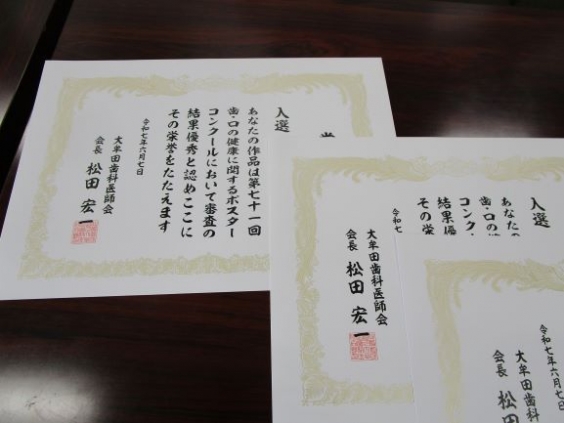 入選
あなたの作品は第七十一回
歯・口の健康に関するポスター
コンクールにおいて審査の
結果優秀と認めここに
その栄誉をたたえます
令和七年六月七日
大牟田歯科医師会
会長 松田宏一
入選
あなたの
歯・口の健
コンク
結果優
その栄
令和七
大牟田歯科医師会
会長 松田宏一
令和七年六月七日
大牟田歯科
会長 松田